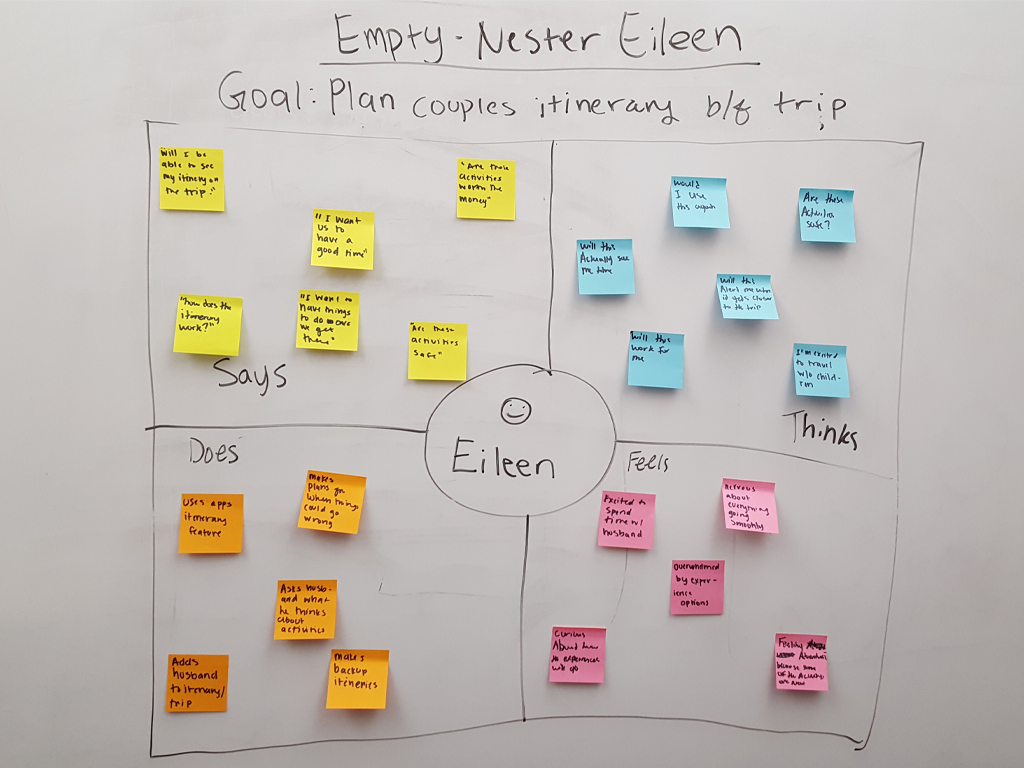 Empty-Nester Eileen
Goal: Plan couples itinerary b/f trip
Will I be
able to see
my itinery on
the trip."
"Are these
activities
worth the
money"
"I want
us to
have a
good time"
"how does the
itinerary
work?"
"I want to
have things
to do once
we get
there"
"Are these
activities
safe"
Says
would
I use
this again
Are these
Activities
safe?
will this
Actually save
me time
will this
Alert me when
it gets closer
to the trip
Will this
work for
me
I'm excited
to travel
w/o child-
ren
Thinks
Eileen
Does
uses apps
itinerary
feature
makes
plans for
when things
could go
wrong
Asks husb-
and what
he thinks
about
activities
Adds
husband
to itinerary/
trip
makes
backup
itineries
Feels
Excited to
spend
time w/
husband
nervous
about
everything
going
smoothly
overwhelmed
by exper-
ience
options
Curious
About how
the experiences
will go
Feeling
Adventurous
because some
of the Activities
are new